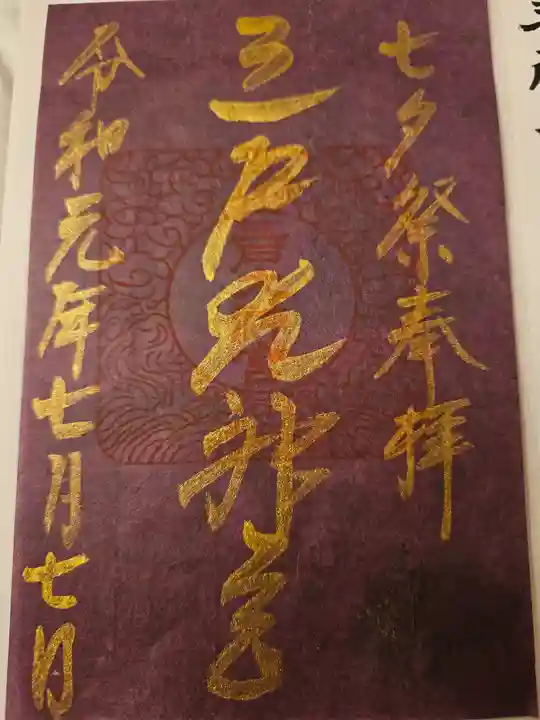 七夕祭奉拝
三戸大神宮
令和元年七月七日